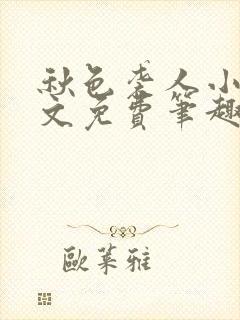 秋色袭人小
文免費筆趣
歐萊雅